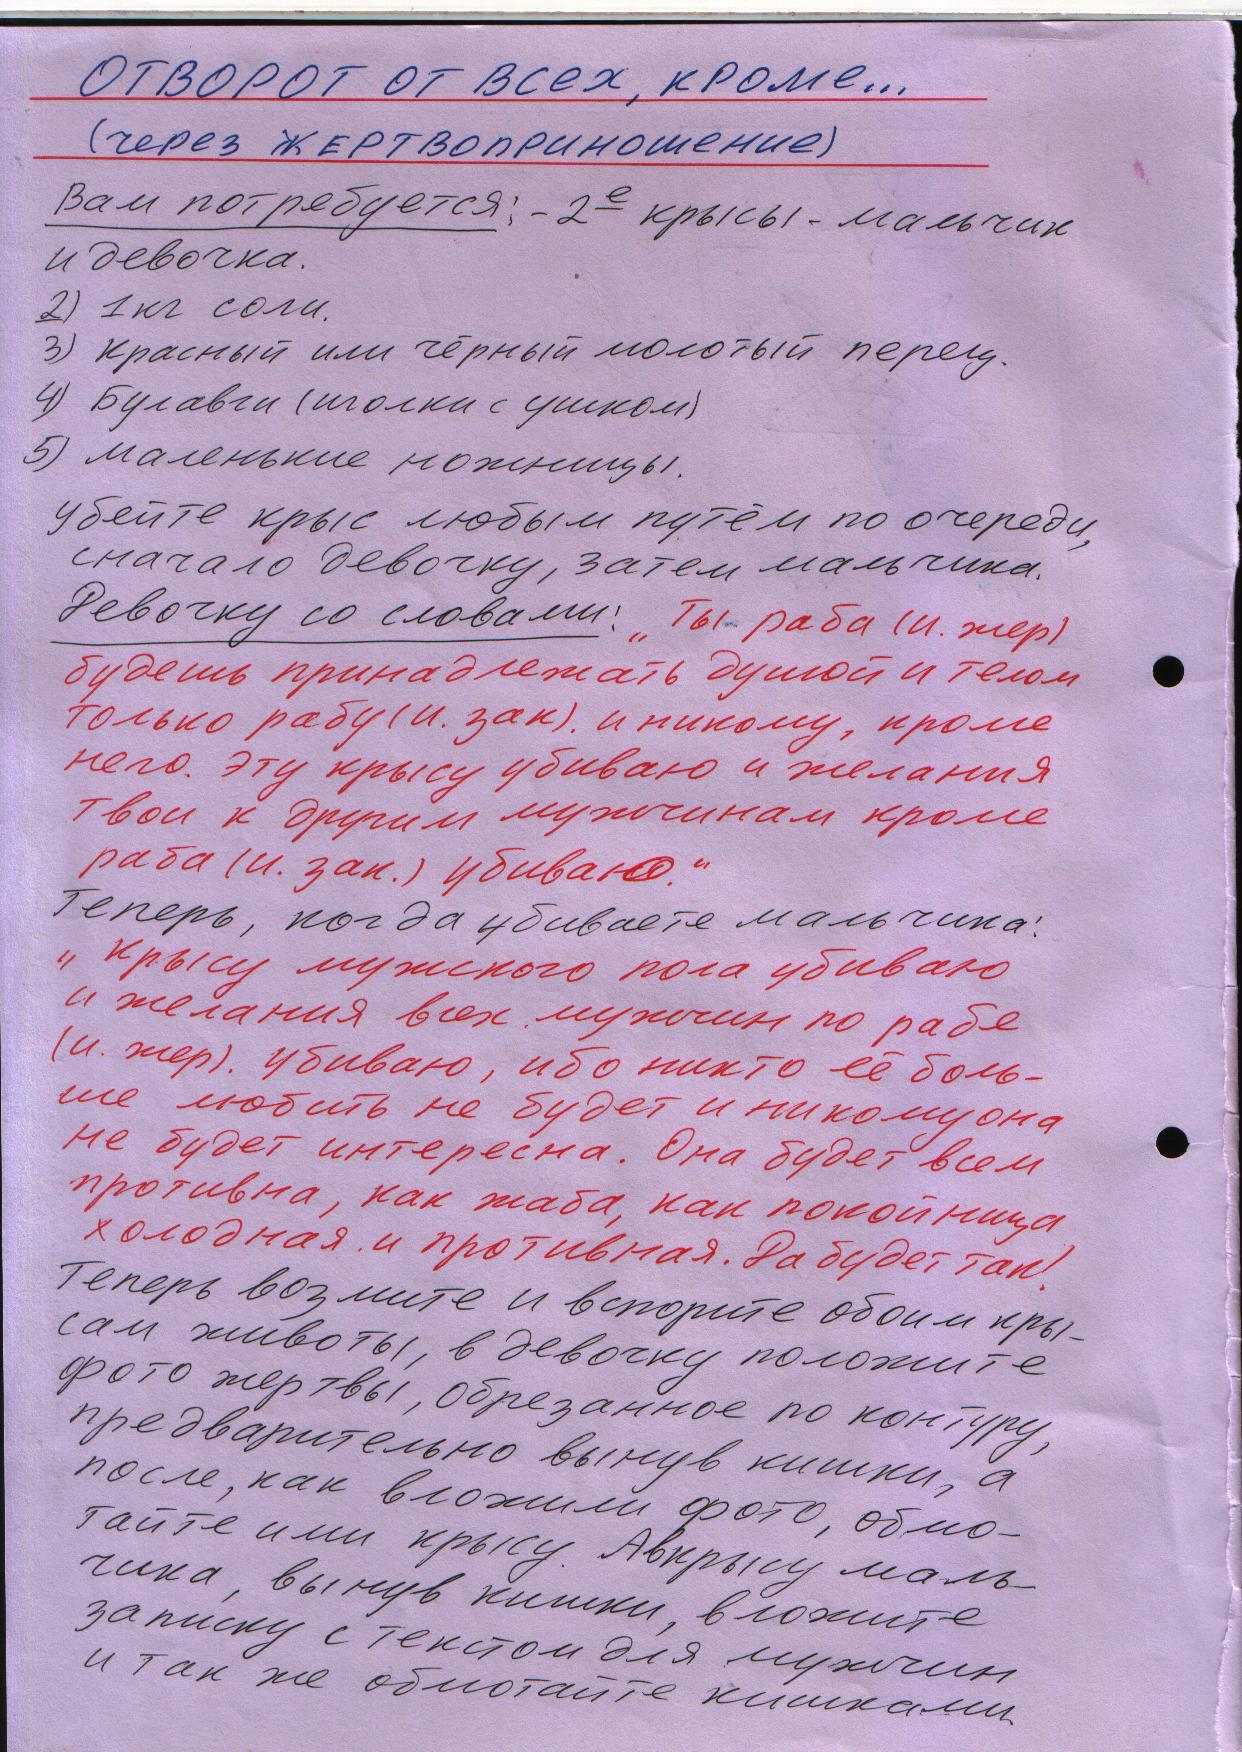 ОТВОРОТ ОТ ВСЕХ, КРОМЕ...
(через ЖЕРТВОПРИНОШЕНИЕ)
Вам потребуется: - 2е крысы - мальчик
и девочка.
2) 1кг соли.
3) Красный или чёрный молотый перец.
4) Булавки (иголки с ушком)
5) маленькие ножницы.
убейте крыс любым путём по очереди,
сначало девочку, затем мальчика.
Девочку со словами: „Ты раба (и. жер)
будешь принадлежать душой и телом
только рабу (и. зак). и никому, кроме
него. Эту крысу убиваю и желания
твои к другим мужчинам кроме
раба (и. зак.) убиваю."
Теперь, когда убиваете мальчика:
„Крысу мужского пола убиваю
и желания всех мужчин по рабе
(и. жер). убиваю, ибо никто её боль-
ше любить не будет и никому она
не будет интересна. Она будет всем
противна, как жаба, как покойница
холодная и противная. Да будет так!
Теперь возмите и вспорите обоим кры-
сам животы, в девочку положите
фото жертвы, обрезанное по контуру,
предварительно вынув кишки, а
после, как вложили фото, обмо-
тайте ими крысу. А в крысу маль-
чика, вынув кишки, вложите
записку с текстом для мужчин
и так же обмотайте кишками